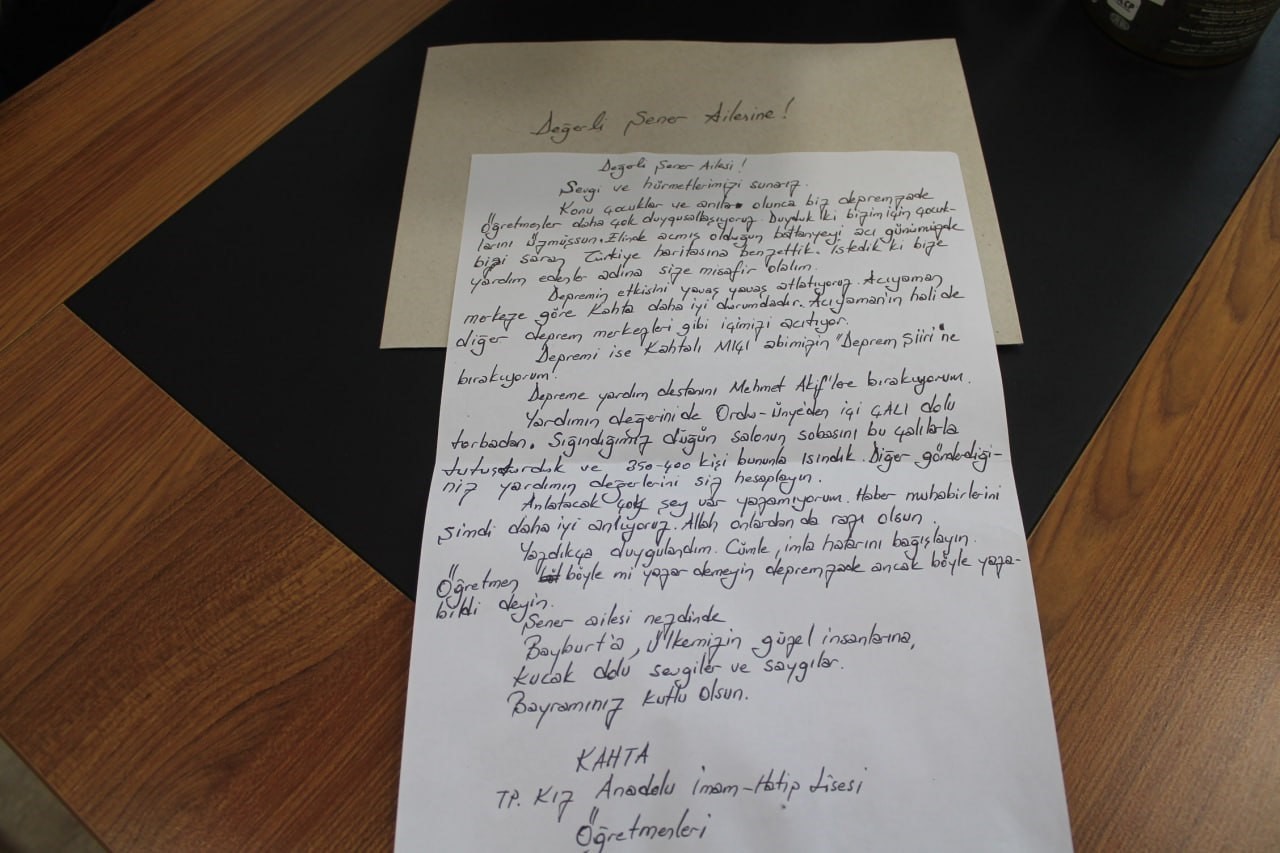 Değerli Şener Ailesine!
Değerli Şener Ailesi!
Sevgi ve hürmetlerimizi sunarız.
Konu çocuklar ve anılar olunca biz depremzede
Öğretmenler daha çok duygusallaşıyoruz. Duyduk ki bizim için çocuk-
larını Üzmüşsun. Elinde açmış olduğun battaniyeyi acı günümüzde
bizi saran Türkiye haritasına benzettik. İstedik ki bize
yardım edenler adına size misafir olalım.
Depremin etkisini yavaş yavaş atlatıyoruz. Acıyaman
merkeze göre Kahta daha iyi durumdadır. Acıyaman'ın hali de
diğer deprem merkezleri gibi içimizi acıtıyor.
Depremi ise Kahtalı MIÇI abimizin "Deprem Şiiri"ne
bırakıyorum.
Depreme yardım destanını Mehmet Akif'lere bırakıyorum.
Yardımın değerini de Ordu-Ünye'den içi ÇALI dolu
torbadan. Sığındığımız düğün salonun sobasını bu çalılarla
tutuşturduk ve 350-400 kişi bununla ısındık. Diğer gönderdiği-
niz yardımın değerlerini siz hesaplayın.
Anlatacak çok şey var yazamıyorum. Haber muhabirlerini
şimdi daha iyi anlıyoruz. Allah onlardan da razı olsun.
Yazdıkça duygulandım. Cümle, imla hatarını bağışlayın.
Öğretmen böyle mi yazar demeyin depremzede ancak böyle yaza-
bildi deyin.
Şener ailesi nezdinde
Bayburt'a, Ülkemizin güzel insanlarına,
kucak dolu sevgiler ve saygılar.
Bayramınız kutlu olsun.
KAHTA
TP. Kız Anadolu İmam-Hatip Lisesi
Öğretmenleri